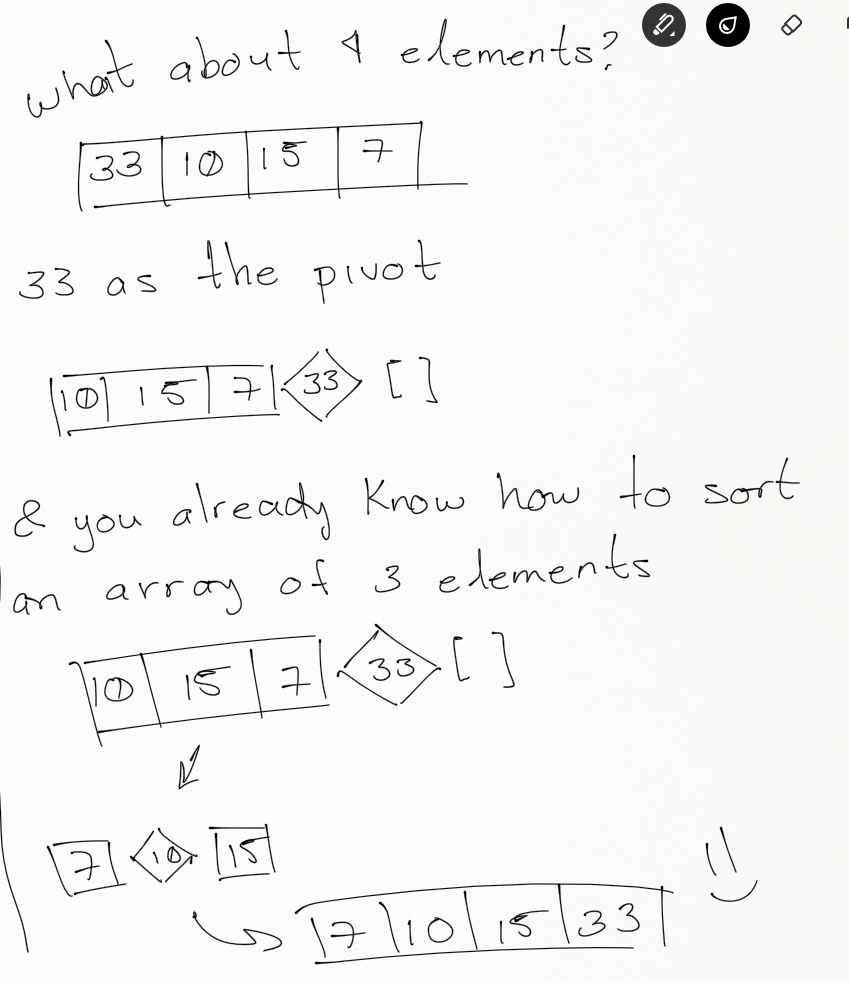 what about 4 elements?
33 10 15 7
33 as the pivot
10 15 7 33 [ ]
& you already know how to sort
an array of 3 elements
10 15 7 33 [ ]
7 10 15
7 10 15 33